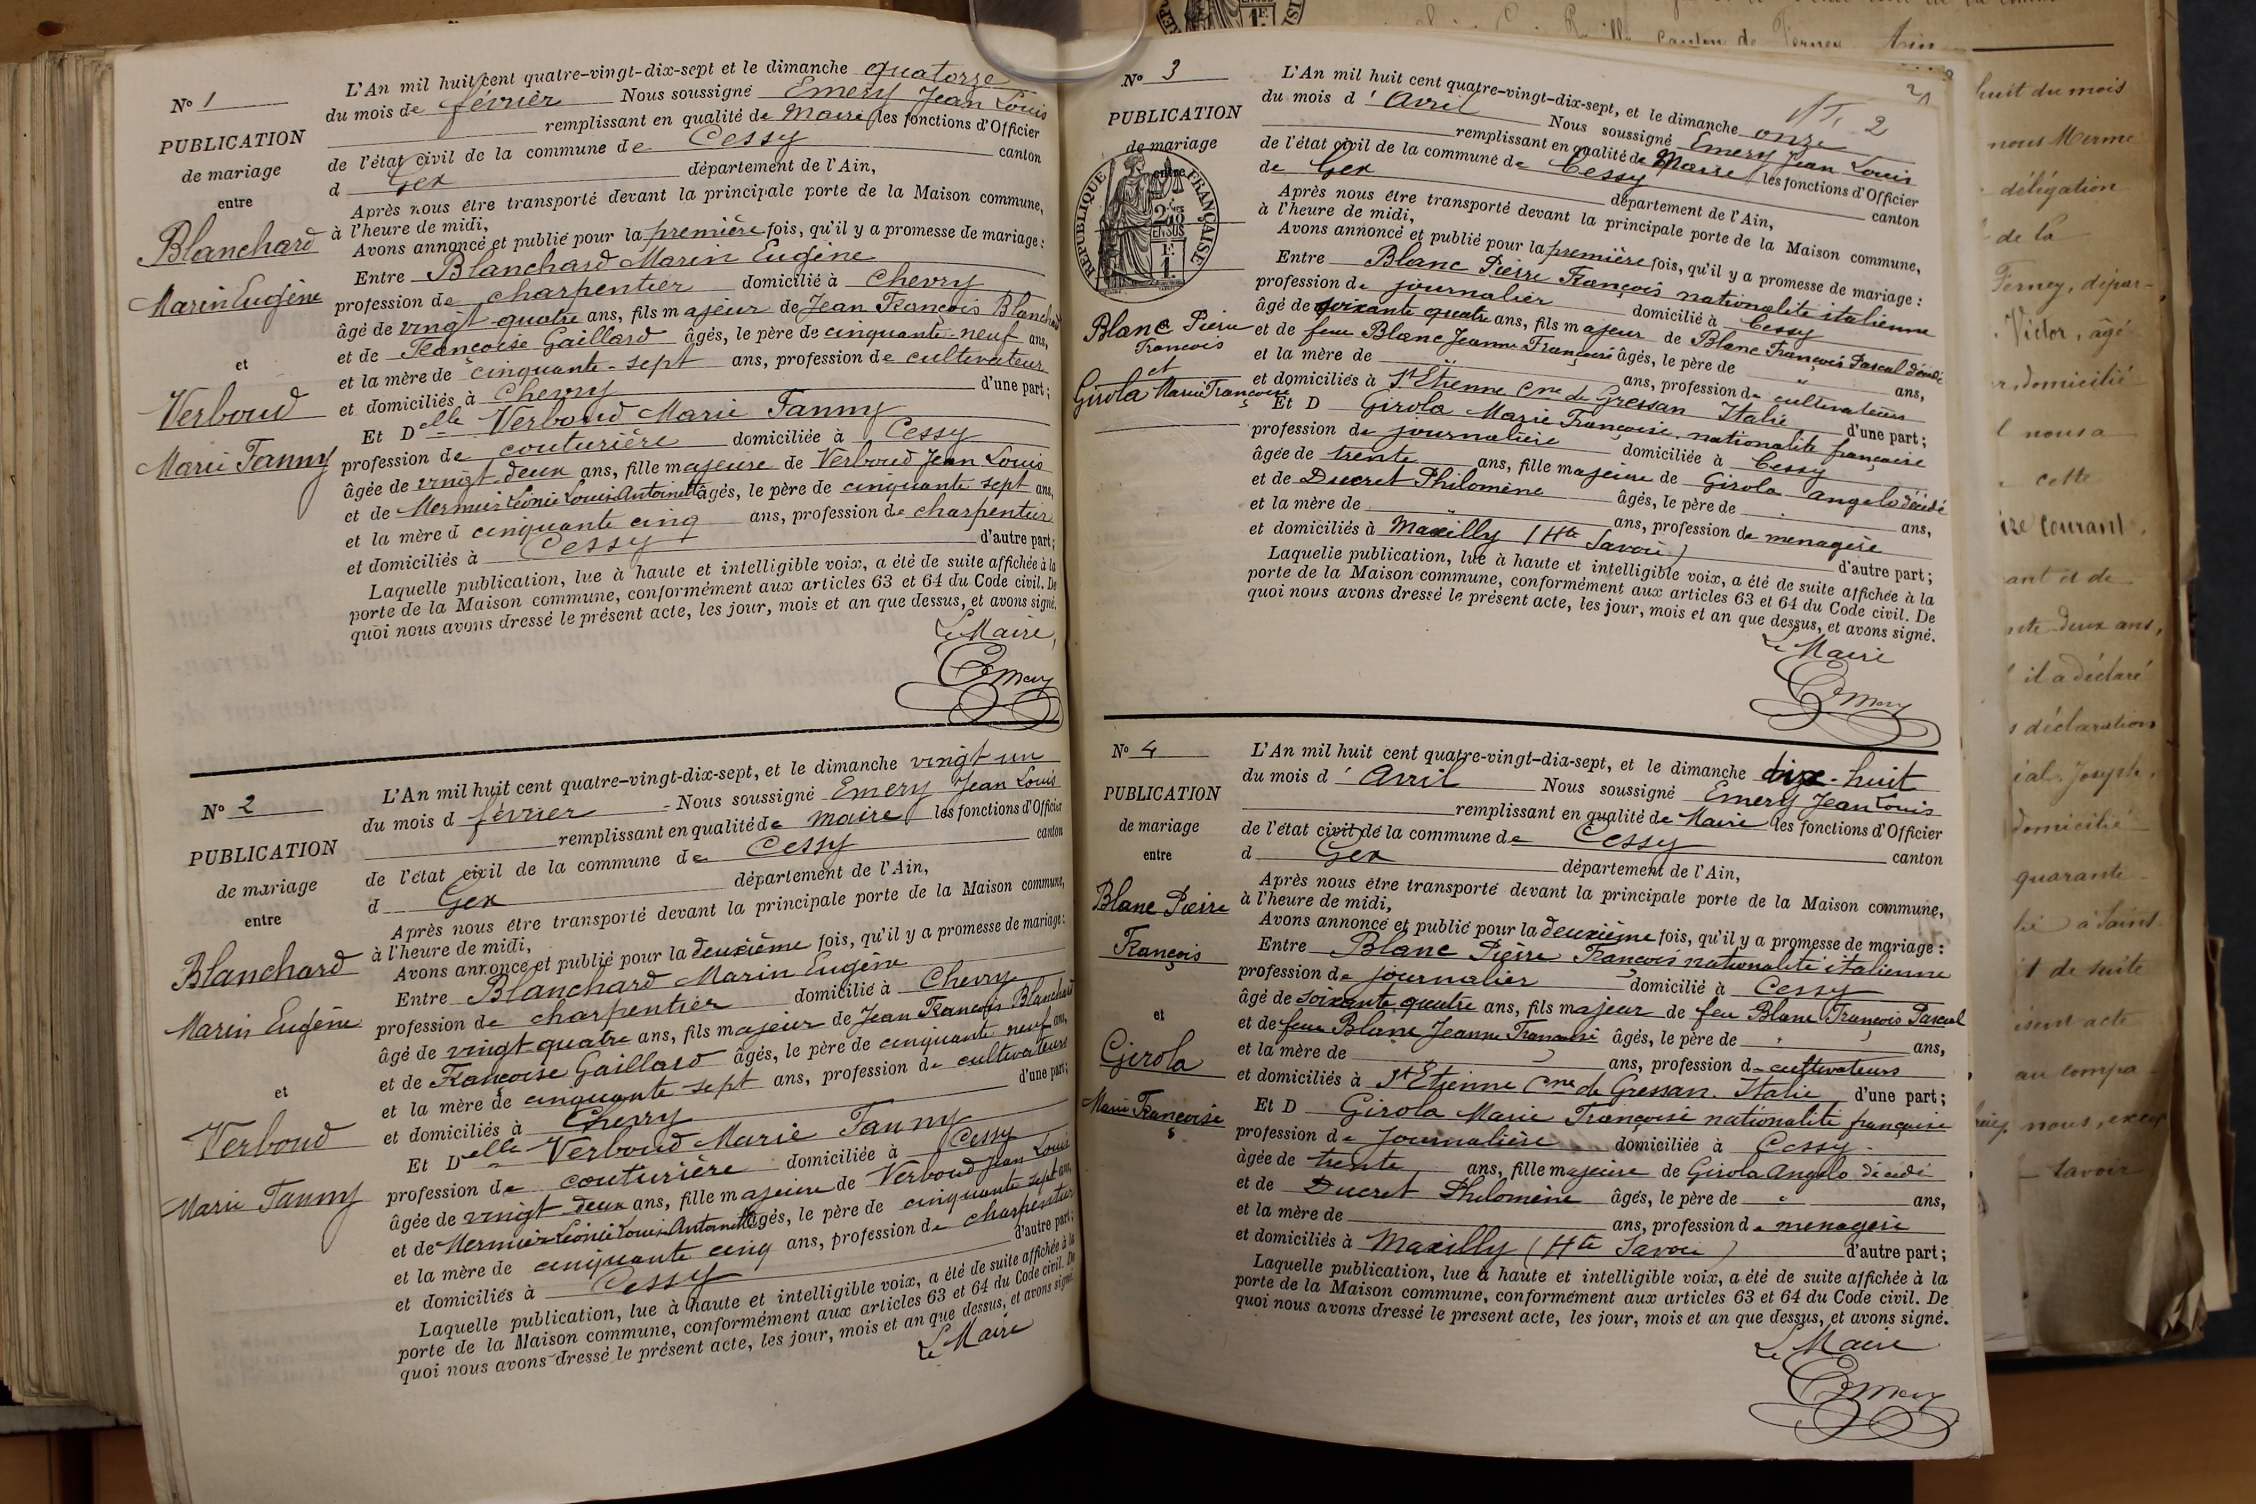 N° 1
PUBLICATION
de mariage
entre
Blanchard
Marin Eugène
et
Verboud
Marie Fanny
L'An mil huit cent quatre-vingt-dix-sept et le dimanche quatorze
du mois de février Nous soussigné Emery Jean Louis
remplissant en qualité de Maire les fonctions d'Officier
de l'état civil de la commune de Cessy canton
d Gex département de l'Ain,
Après nous être transporté devant la principale porte de la Maison commune,
à l'heure de midi,
Avons annoncé et publié pour la première fois, qu'il y a promesse de mariage :
Entre Blanchard Marin Eugène
profession de charpentier domicilié à Chevry
âgé de vingt-quatre ans, fils majeur de Jean François Blanchard
et de Françoise Gaillard âgés, le père de cinquante-neuf ans,
et la mère de cinquante-sept ans, profession de cultivateur
et domiciliés à Chevry d'une part ;
Et Delle Verboud Marie Fanny
profession de couturière domiciliée à Cessy
âgée de vingt-deux ans, fille majeure de Verboud Jean Louis
et de Mermier Léonie Louise Antoinette âgés, le père de cinquante sept ans,
et la mère d cinquante cinq ans, profession de charpentier
et domiciliés à Cessy d'autre part ;
Laquelle publication, lue à haute et intelligible voix, a été de suite affichée à la
porte de la Maison commune, conformément aux articles 63 et 64 du Code civil. De
quoi nous avons dressé le présent acte, les jour, mois et an que dessus, et avons signé.
Le Maire,
Emery
N° 2
PUBLICATION
de mariage
entre
Blanchard
Marin Eugène
et
Verboud
Marie Fanny
L'An mil huit cent quatre-vingt-dix-sept, et le dimanche vingt un
du mois d février Nous soussigné Emery Jean Louis
remplissant en qualité de maire les fonctions d'Officier
de l'état civil de la commune de Cessy canton
d Gex département de l'Ain,
Après nous être transporté devant la principale porte de la Maison commune,
à l'heure de midi,
Avons annoncé et publié pour la deuxième fois, qu'il y a promesse de mariage :
Entre Blanchard Marin Eugène
profession de charpentier domicilié à Chevry
âgé de vingt-quatre ans, fils majeur de Jean François Blanchard
et de Françoise Gaillard âgés, le père de cinquante neuf ans,
et la mère de cinquante sept ans, profession de cultivateurs
et domiciliés à Chevry d'une part ;
Et Delle Verboud Marie Fanny
profession de couturière domiciliée à Cessy
âgée de vingt deux ans, fille majeure de Verboud Jean Louis
et de Mermier Léonie Louise Antoinette âgés, le père de cinquante sept ans,
et la mère de cinquante cinq ans, profession de charpentier
et domiciliés à Cessy d'autre part ;
Laquelle publication, lue à haute et intelligible voix, a été de suite affichée à la
porte de la Maison commune, conformément aux articles 63 et 64 du Code civil. De
quoi nous avons dressé le présent acte, les jour, mois et an que dessus, et avons signé.
Le Maire
N° 3
PUBLICATION
de mariage
entre
RÉPUBLIQUE FRANÇAISE
Blanc Pierre
François
et
Girola Marie Françoise
2
L'An mil huit cent quatre-vingt-dix-sept, et le dimanche onze
du mois d'Avril Nous soussigné Emery Jean Louis
remplissant en qualité de Maire les fonctions d'Officier
de l'état civil de la commune de Cessy canton
de Gex département de l'Ain,
Après nous être transporté devant la principale porte de la Maison commune,
à l'heure de midi,
Avons annoncé et publié pour la première fois, qu'il y a promesse de mariage :
Entre Blanc Pierre François nationalité italienne
profession de journalier domicilié à Cessy
âgé de soixante quatre ans, fils majeur de Blanc François Pascal décédé
et de feue Blanc Jeanne Françoise âgés, le père de ans,
et la mère de ans, profession de cultivateurs
et domiciliés à St Etienne Cne de Gressan Italie d'une part ;
Et D Girola Marie Françoise nationalité française
profession de journalière domiciliée à Cessy
âgée de trente ans, fille majeure de Girola Angelo décédé
et de Ducret Philomène âgés, le père de ans,
et la mère de ans, profession de menagère
et domiciliés à Maxilly (Hte Savoie) d'autre part ;
Laquelle publication, lue à haute et intelligible voix, a été de suite affichée à la
porte de la Maison commune, conformément aux articles 63 et 64 du Code civil. De
quoi nous avons dressé le présent acte, les jour, mois et an que dessus, et avons signé.
Le Maire
Emery
N° 4
PUBLICATION
de mariage
entre
Blanc Pierre
François
et
Girola
Marie Françoise
L'An mil huit cent quatre-vingt-dix-sept, et le dimanche dix-huit
du mois d'Avril Nous soussigné Emery Jean Louis
remplissant en qualité de Maire les fonctions d'Officier
de l'état civil de la commune de Cessy canton
d Gex département de l'Ain,
Après nous être transporté devant la principale porte de la Maison commune,
à l'heure de midi,
Avons annoncé et publié pour la deuxième fois, qu'il y a promesse de mariage :
Entre Blanc Pierre François nationalité italienne
profession de journalier domicilié à Cessy
âgé de soixante quatre ans, fils majeur de feu Blanc François Pascal
et de feue Blanc Jeanne Françoise âgés, le père de ans,
et la mère de ans, profession de cultivateurs
et domiciliés à St Etienne Cne de Gressan. Italie d'une part ;
Et D Girola Marie Françoise nationalité française
profession de Journalière domiciliée à Cessy
âgée de trente ans, fille majeure de Girola Angelo décédé
et de Ducret Philomène âgés, le père de ans,
et la mère de ans, profession de menagère
et domiciliés à Maxilly (Hte Savoie) d'autre part ;
Laquelle publication, lue à haute et intelligible voix, a été de suite affichée à la
porte de la Maison commune, conformément aux articles 63 et 64 du Code civil. De
quoi nous avons dressé le présent acte, les jour, mois et an que dessus, et avons signé.
Le Maire
Emery
canton de Ferney Ain
huit du mois
nous Merme
délégation
de la
Ferney, dépar-
Victor, âgé
domicilié
nous a
cette
courant.
ant et de
nte deux ans,
il a déclaré
déclarations
Joseph,
domicilié
quarante
à Saint
it de suite
acte
au compa
nous,
savoir